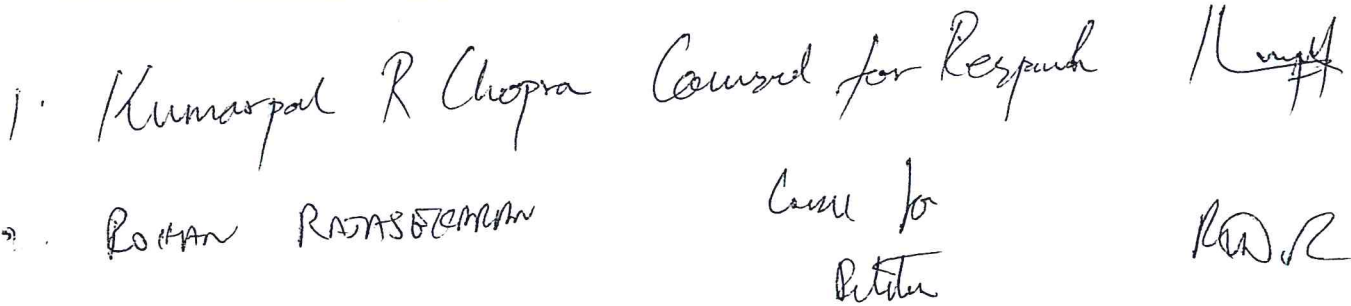 1. Kumarpal R Chopra Counsel for Respondent
2. ROHAN RAJASEKARAN Counsel for
Petitioner